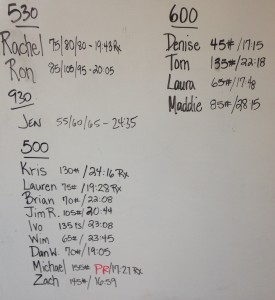 530
Rachel 75/80/80 - 19:43 Rx
Ron 85/105/95 - 20:05
930
JEN 55/60/65 - 24:35
500
Kris 130#/24:16 Rx
Lauren 75#/19:28 Rx
Brian 70#/22:08
Jim R. 105#/20:44
Ivo 135#/23:08
Wim 65#/23:45
Dan W. 70#/19:05
Michael 155# PR/19:27 Rx
Zach 145#/16:59
600
Denise 45#/17:15
Tom 135#/22:18
Laura 65#/17:48
Maddie 85#/28:15